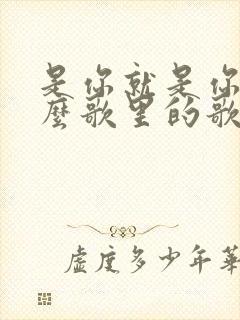 是你就是你
麼歌里的歌
虚度多少年華